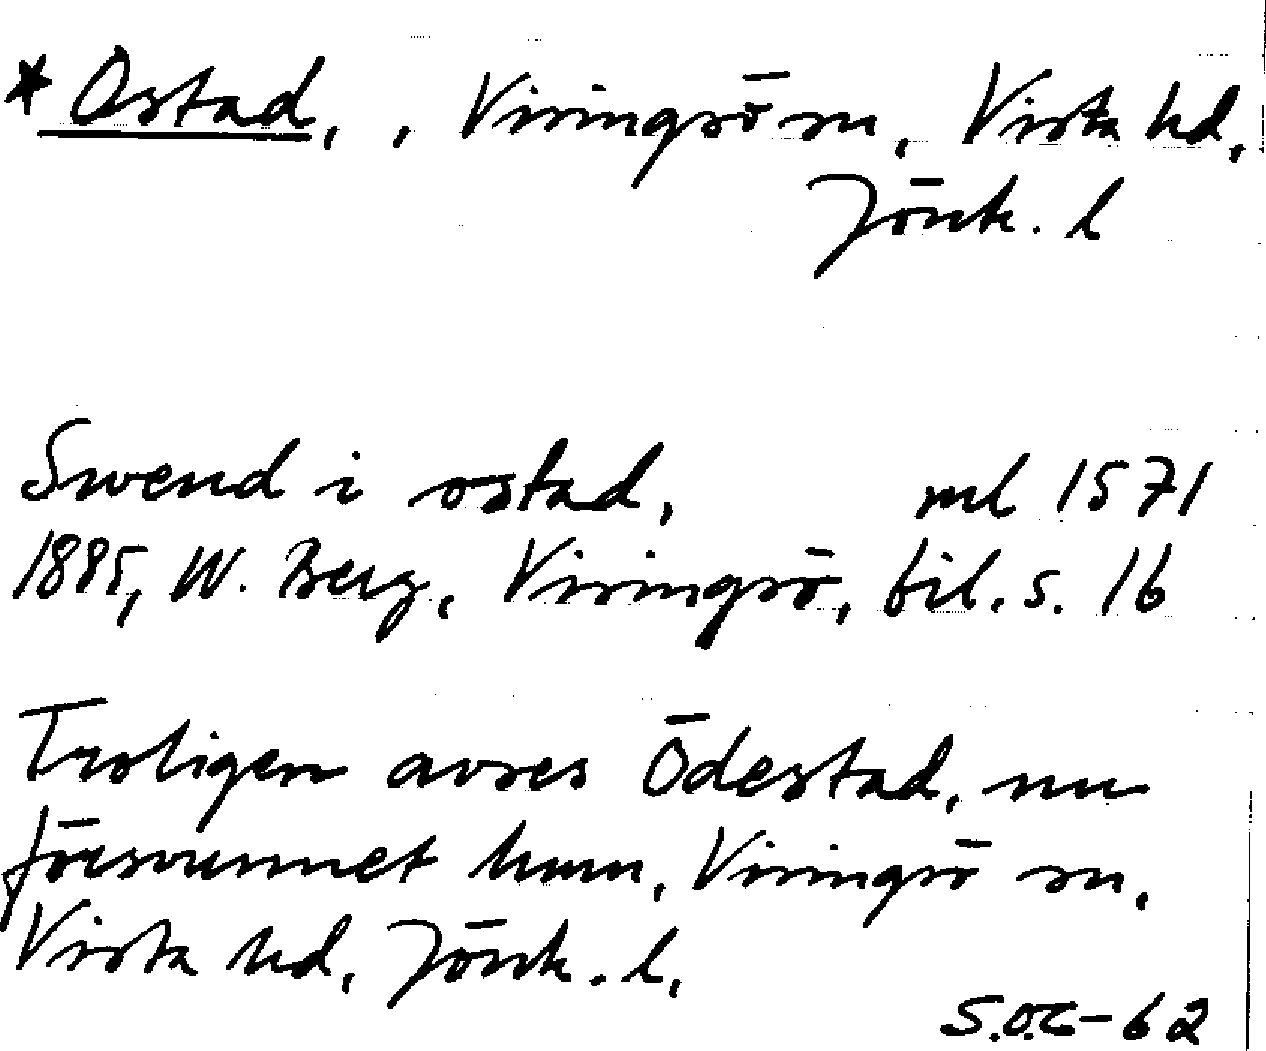 * Ostad, , Visingsö sn, Vista hd,
Jönk. l
Swend i ostad, ml 1571
1885, W. Berg, Visingsö, bil. s. 16
Troligen avses Ödestad, nu
försvunnet hmn, Visingsö sn,
Vista hd, Jönk. l,
S.O.C-62